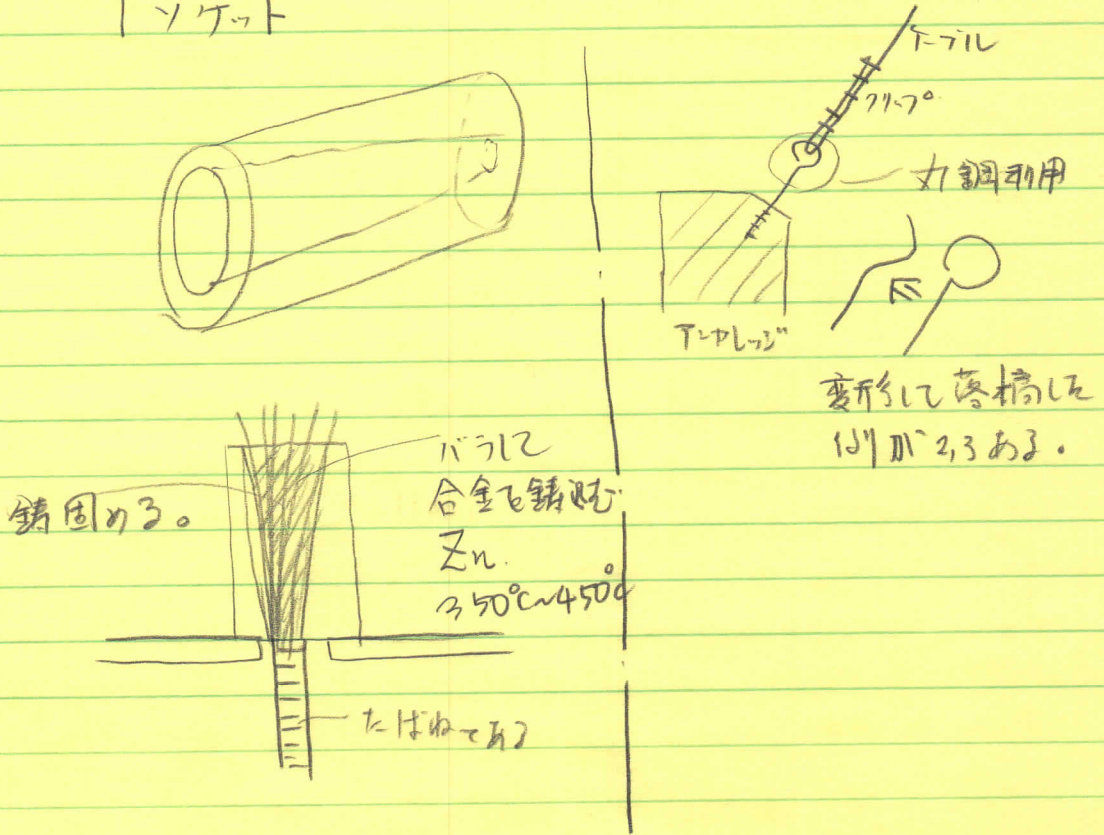 ソケット
鋳固める。
バラして
合金を鋳込む
Zn.
350℃~450℃
たばねてある
ケーブル
クリップ
丸鋼利用
アンカレッジ
変形して落橋した
例が2,3ある。